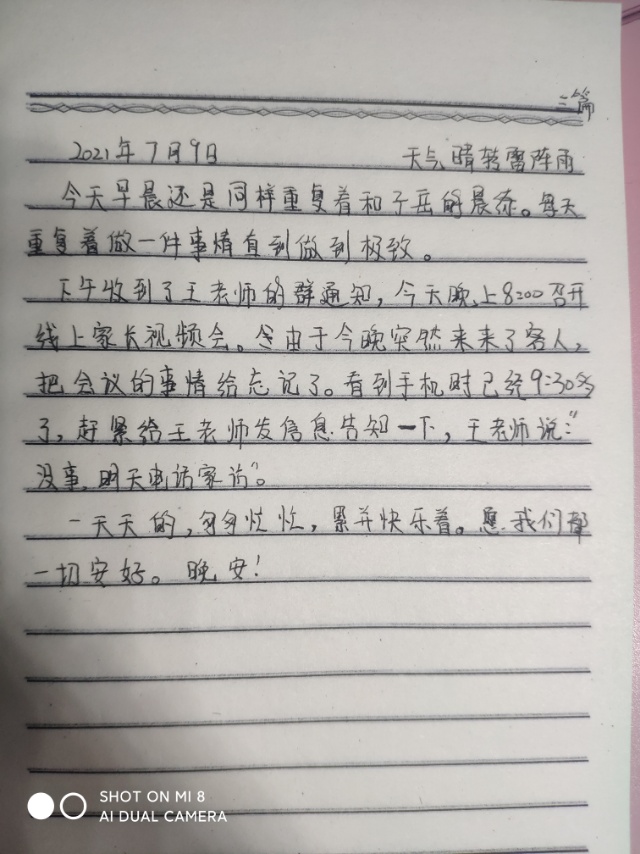 三篇
2021年7月9日 天气 晴转雷阵雨
今天早晨还是同样重复着和子岳的晨练。每天
重复着做一件事情直到做到极致。
下午收到了王老师的群通知，今天晚上8:00召开
线上家长视频会。由于今晚突然来来了客人，
把会议的事情给忘记了。看到手机时已经9:30多
了，赶紧给王老师发信息告知一下，王老师说："
没事，明天电话家访"。
一天天的，匆匆忙忙，累并快乐着。愿我们都
一切安好。晚安！
SHOT ON MI 8
AI DUAL CAMERA